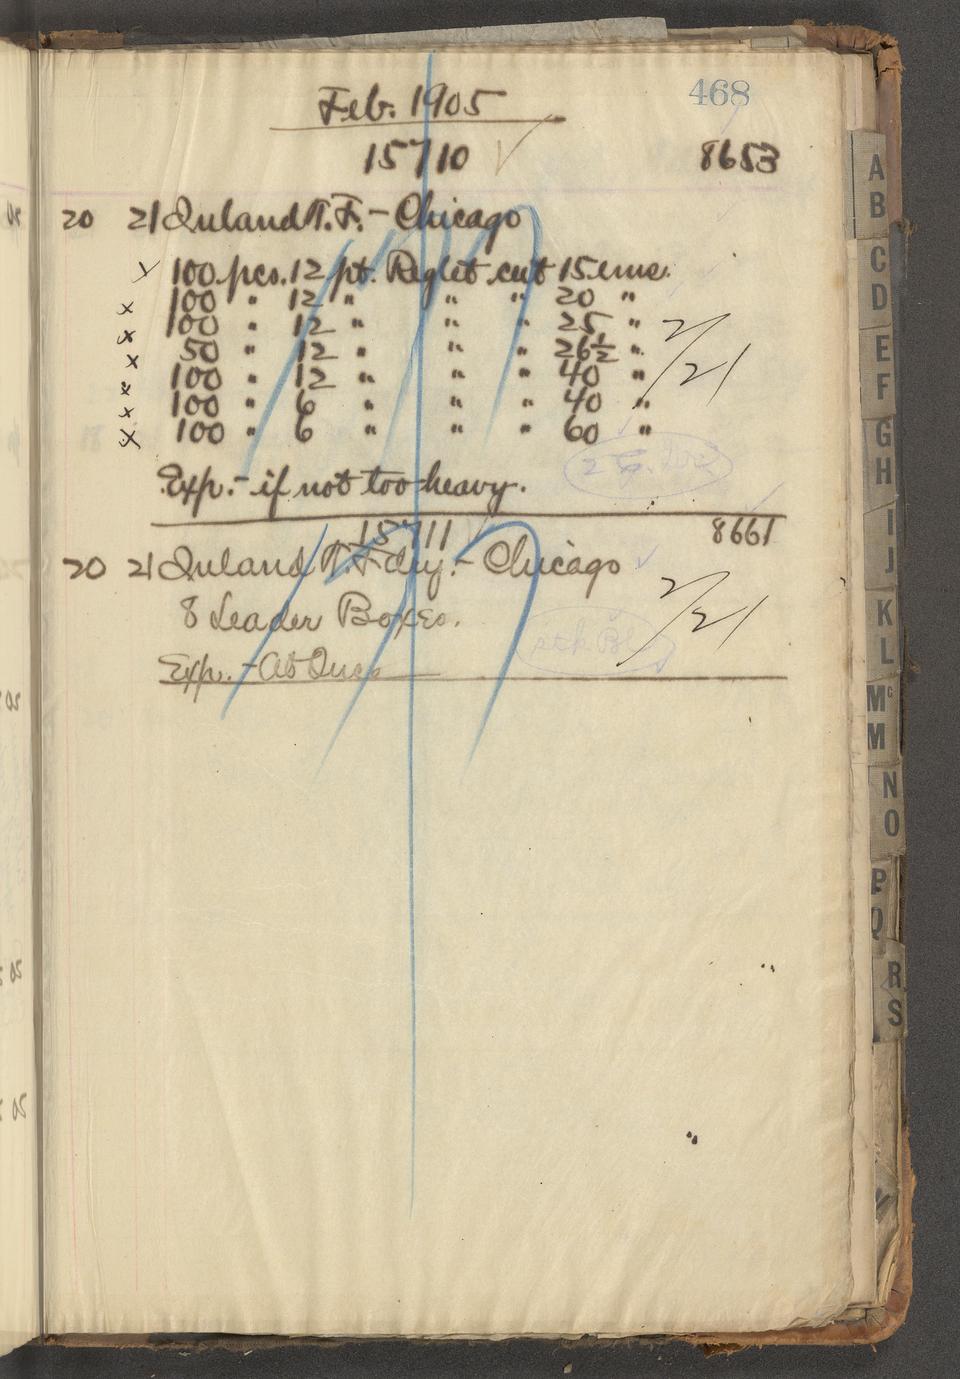 468
Feb. 1905
15710 8653
20 21 Inland T.F. - Chicago
x 100 pcs. 12 pt. Reglet cut 15 ems.
x 100 " 12 " " " 20 "
x 100 " 12 " " " 25 " 2/21
x 50 " 12 " " " 26½ "
x 100 " 12 " " " 40 "
x 100 " 6 " " " 40 "
x 100 " 6 " " " 60 "
Exp. - if not too heavy.
15711 8661
20 21 Inland T. Fdry. - Chicago
8 Leader Boxes. 2/21
Exp. - At Once
A
B
C
D
E
F
G
H
I
J
K
L
Mc
M
N
O
P
Q
R
S